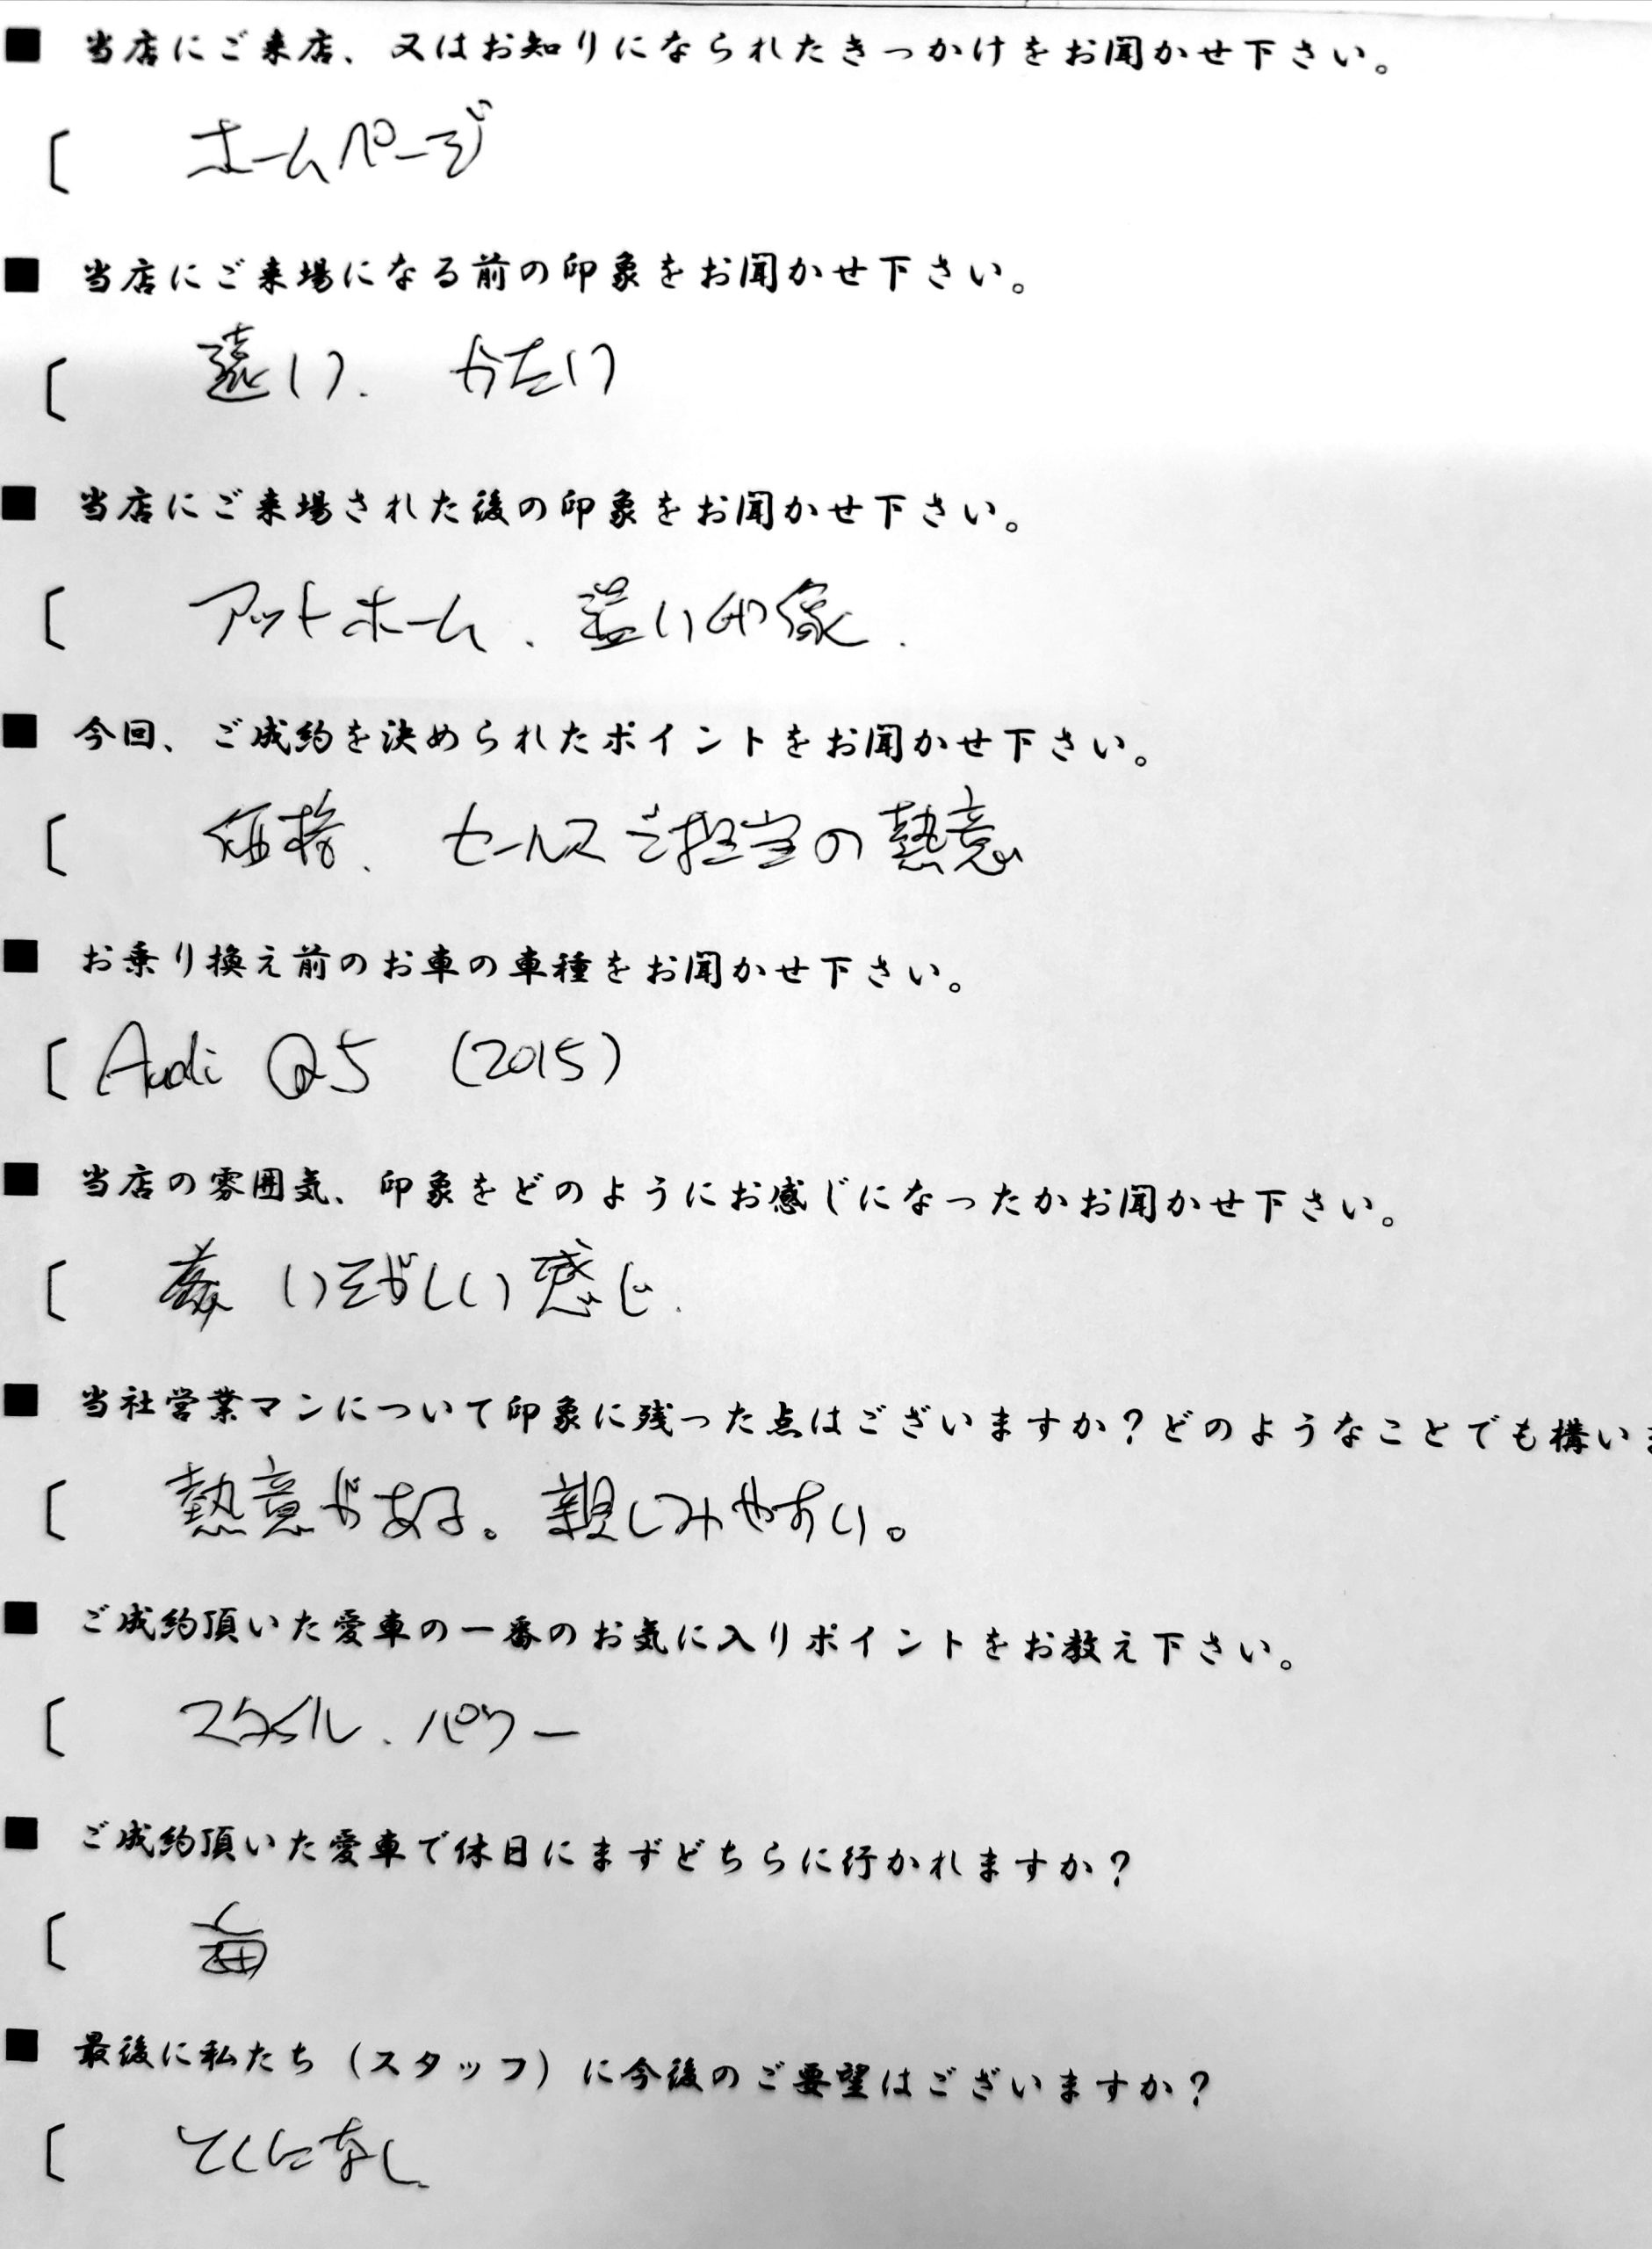 ■ 当店にご来店、又はお知りになられたきっかけをお聞かせ下さい。
〔 ホームページ
■ 当店にご来場になる前の印象をお聞かせ下さい。
〔 遠い. かたい
■ 当店にご来場された後の印象をお聞かせ下さい。
〔 アットホーム. い印象.
■ 今回、ご成約を決められたポイントをお聞かせ下さい。
〔 価格. セールスご担当の熱意
■ お乗り換え前のお車の車種をお聞かせ下さい。
〔 Audi Q5 (2015)
■ 当店の雰囲気、印象をどのようにお感じになったかお聞かせ下さい。
〔 いそがしい感じ.
■ 当社営業マンについて印象に残った点はございますか？どのようなことでも構いま
〔 熱意がある。親しみやすい。
■ ご成約頂いた愛車の一番のお気に入りポイントをお教え下さい。
〔 スタイル. パワー
■ ご成約頂いた愛車で休日にまずどちらに行かれますか？
〔
■ 最後に私たち（スタッフ）に今後のご要望はございますか？
〔 とくになし